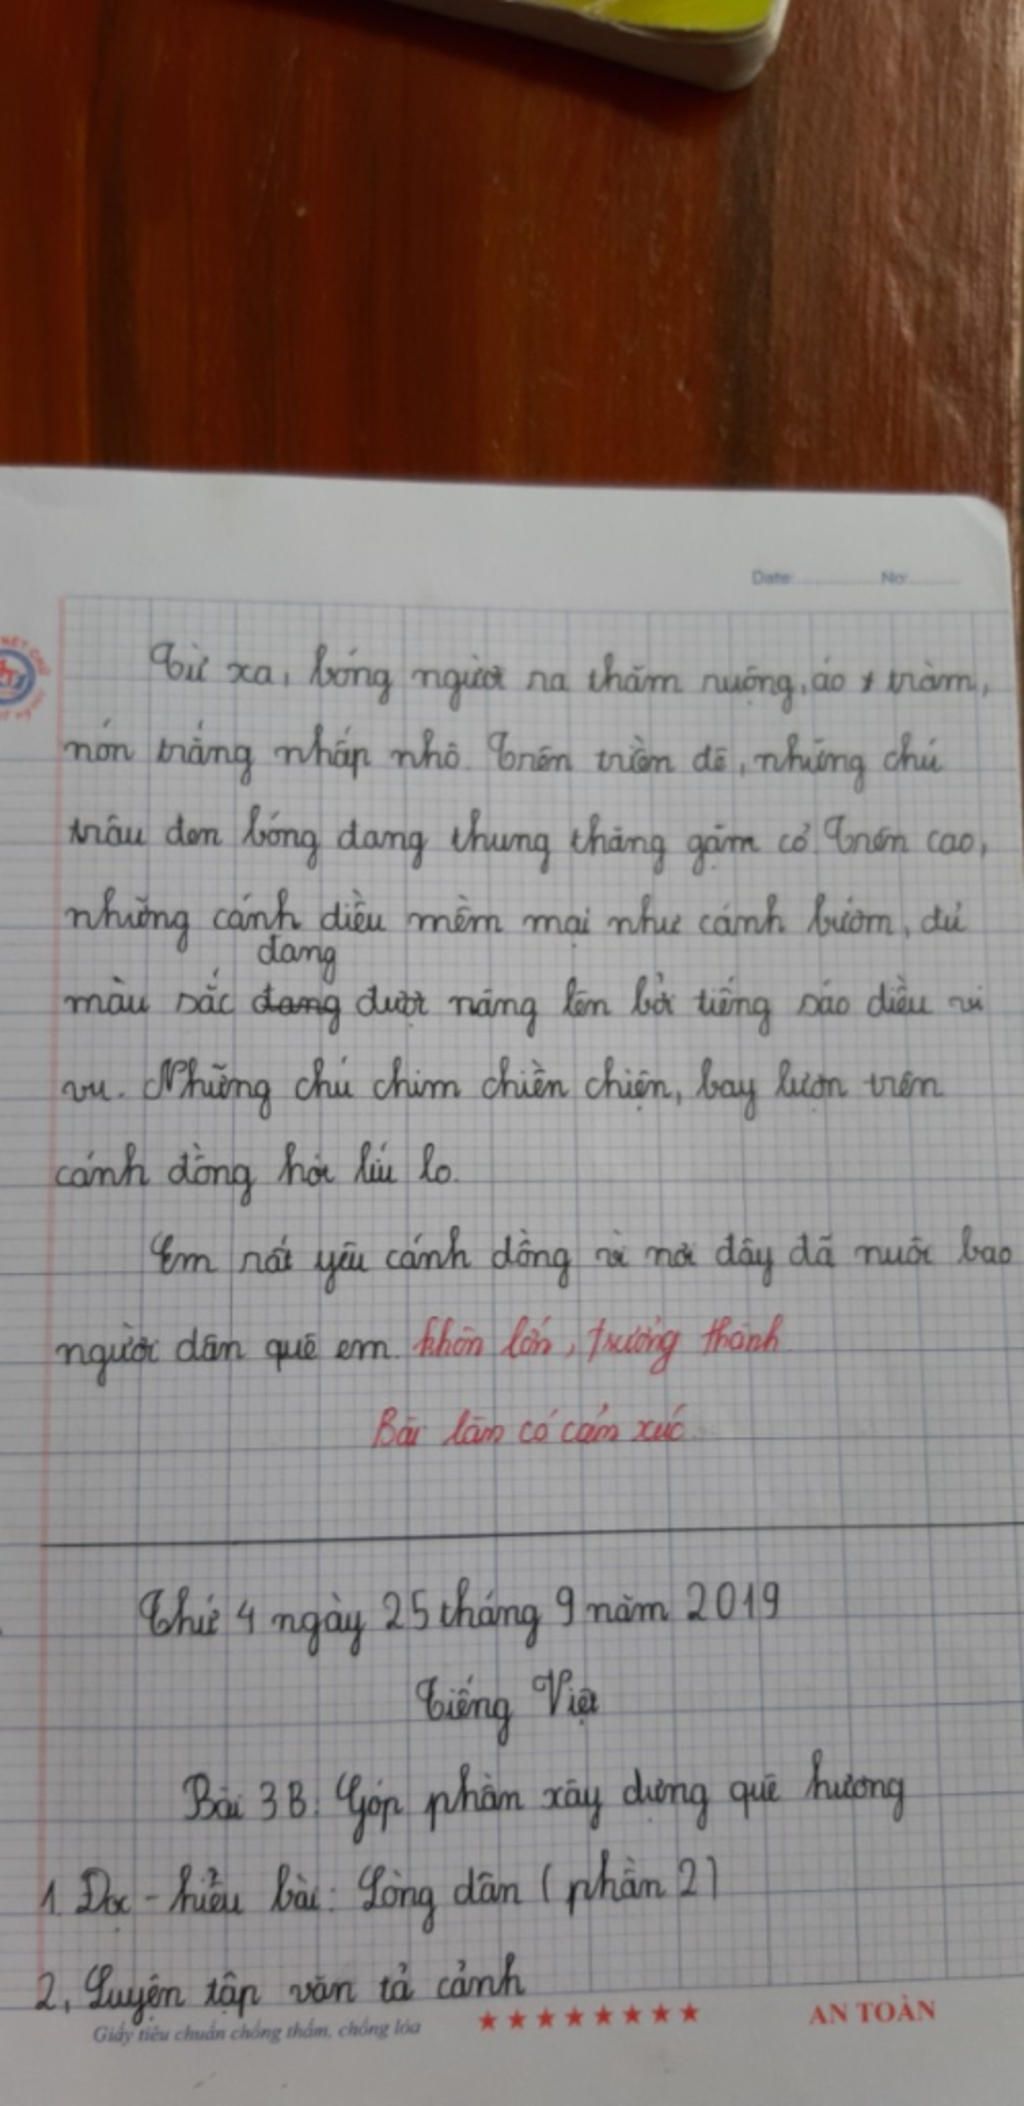 Date: No:
Từ xa, bóng người ra thăm ruộng, áo tràm,
nón trắng nhấp nhô. Trên triền đê, những chú
trâu đen bóng đang thung thăng gặm cỏ. Trên cao,
những cánh diều mềm mại như cánh bướm, đủ
đang
màu sắc đang được nâng lên bởi tiếng sáo diều vi
vu. Những chú chim chiền chiện, bay lượn trên
cánh đồng hót líu lo.
Em rất yêu cánh đồng vì nơi đây đã nuôi bao
người dân quê em. khôn lớn, trưởng thành
Bài làm có cảm xúc
Thứ 4 ngày 25 tháng 9 năm 2019
Tiếng Việt
Bài 3B: Góp phần xây dựng quê hương
1. Đọc - hiểu bài: Lòng dân (phần 2)
2, Luyện tập văn tả cảnh
Giấy tiêu chuẩn chống thấm, chống lóa ★★★★★★★★ AN TOÀN